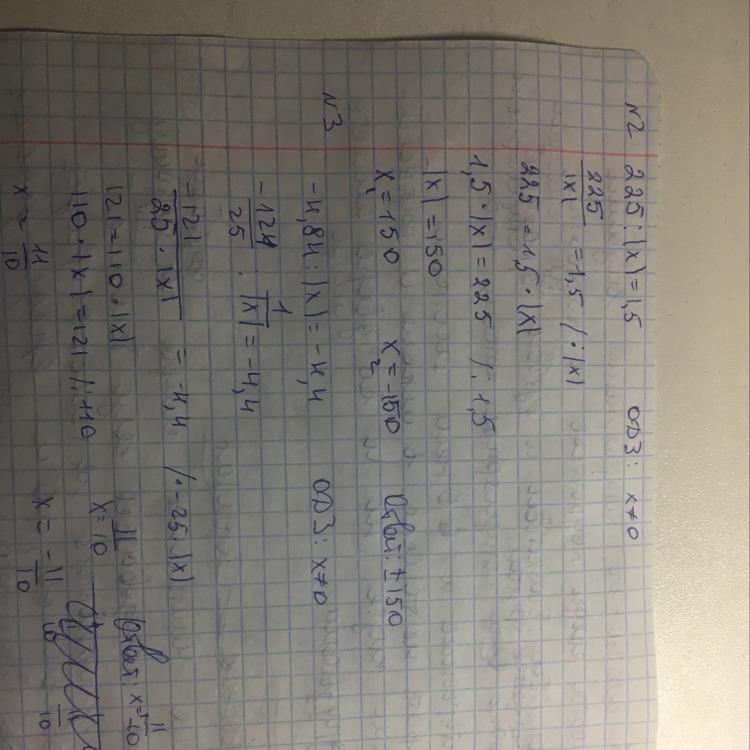 N2 225 : |x| = 1,5 ОДЗ: x ≠ 0
225/|x| = 1,5 / · |x|
225 = 1,5 · |x|
1,5 · |x| = 225 / : 1,5
|x| = 150
x₁ = 150 x₂ = -150 Ответ: ± 150
N3 -4,84 : |x| = -4,4 ОДЗ: x ≠ 0
-124/25 · 1/|x| = -4,4
-121/25 · |x| = -4,4 / · -25 · |x|
121 = 110 · |x|
x = 11/10 Ответ: x = 11/10
110 · |x| = 121 / : 110
x = 11/10 x = -11/10